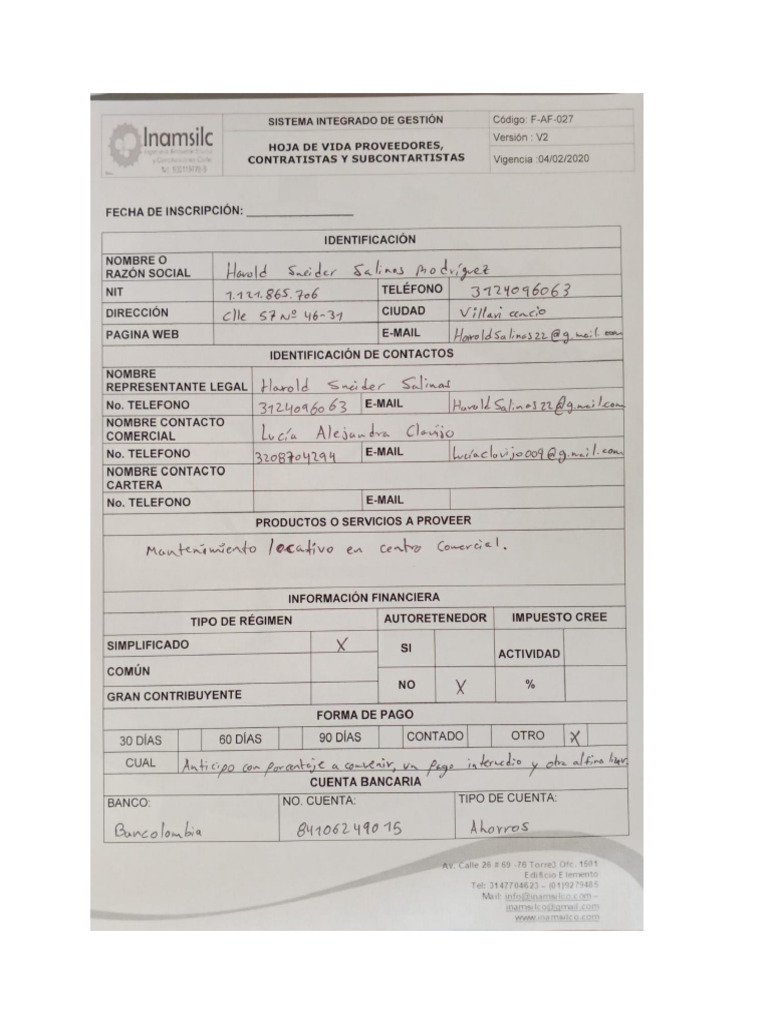 Inamsilc
SISTEMA INTEGRADO DE GESTIÓN
HOJA DE VIDA PROVEEDORES,
CONTRATISTAS Y SUBCONTARTISTAS
Código: F-AF-027
Versión : V2
Vigencia :04/02/2020
FECHA DE INSCRIPCIÓN: ________________
IDENTIFICACIÓN
NOMBRE O
RAZÓN SOCIAL Harold Sneider Salinas Rodríguez
NIT 1.121.865.706 TELÉFONO 3124096063
DIRECCIÓN Clle 57 Nº 46-31 CIUDAD Villavicencio
PAGINA WEB E-MAIL HaroldSalinas22@gmail.com
IDENTIFICACIÓN DE CONTACTOS
NOMBRE
REPRESENTANTE LEGAL Harold Sneider Salinas
No. TELEFONO 3124096063 E-MAIL HaroldSalinas22@gmail.com
NOMBRE CONTACTO
COMERCIAL Lucía Alejandra Clavijo
No. TELEFONO 3208704294 E-MAIL Lucíaclavijo009@gmail.com
NOMBRE CONTACTO
CARTERA
No. TELEFONO E-MAIL
PRODUCTOS O SERVICIOS A PROVEER
Mantenimiento locativo en centro Comercial.
INFORMACIÓN FINANCIERA
TIPO DE RÉGIMEN AUTORETENEDOR IMPUESTO CREE
SIMPLIFICADO X SI ACTIVIDAD
COMÚN
GRAN CONTRIBUYENTE NO X %
FORMA DE PAGO
30 DÍAS 60 DÍAS 90 DÍAS CONTADO OTRO X
CUAL Anticipo con porcentaje a convenir, un pago intermedio y otro al
CUENTA BANCARIA
BANCO: NO. CUENTA: TIPO DE CUENTA:
Bancolombia 84106249015 Ahorros
Av. Calle 26 # 69 -76 Torre3 Ofc. 1501
Edificio Elemento
Tel: 3147704623 – (01)9279485
Mail: info@inamsilco.com –
inamsilco@gmail.com
www.inamsilco.com